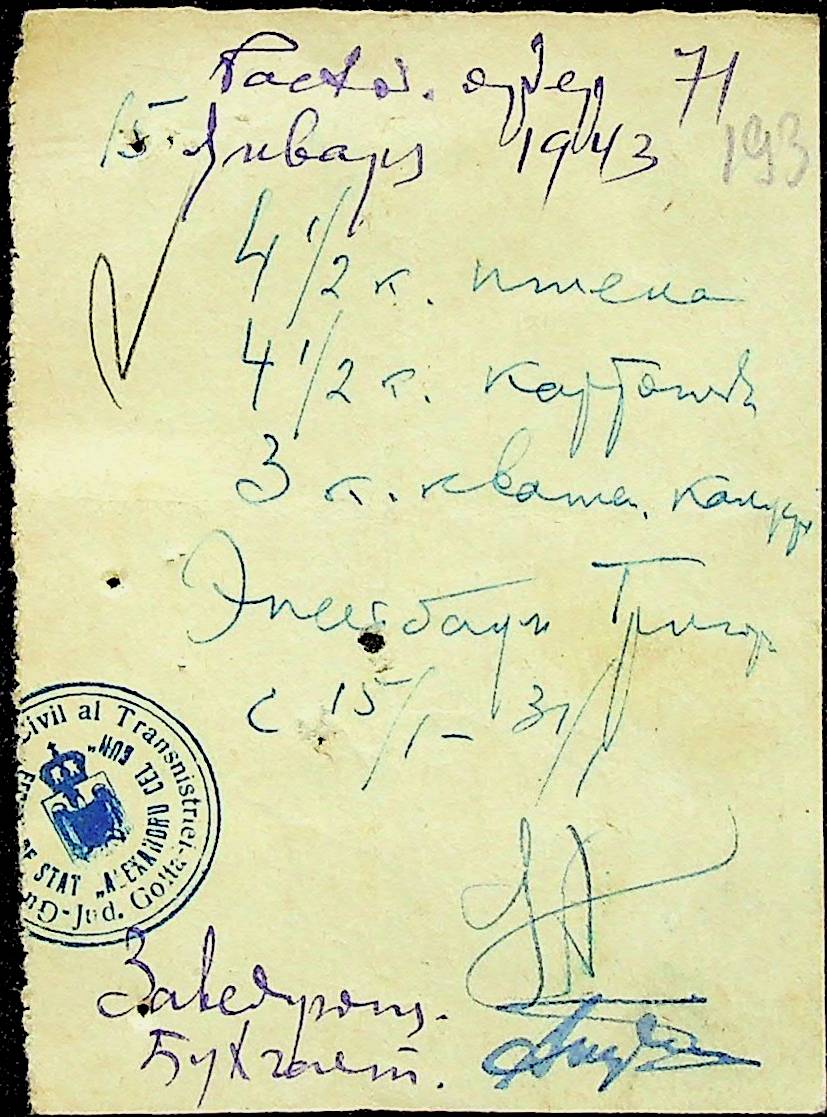 Расход. ордер 71
15 Января 1943
193
4 1/2 к. пшена
4 1/2 к. картошк
3 к. кваш. капус
Григор
с 15/1 - 31/1
Civil al Transnistriei
Jud. Golta
DE STAT „ALEXANDRU CEL BUN"
Заведующ.
Бухгалт.